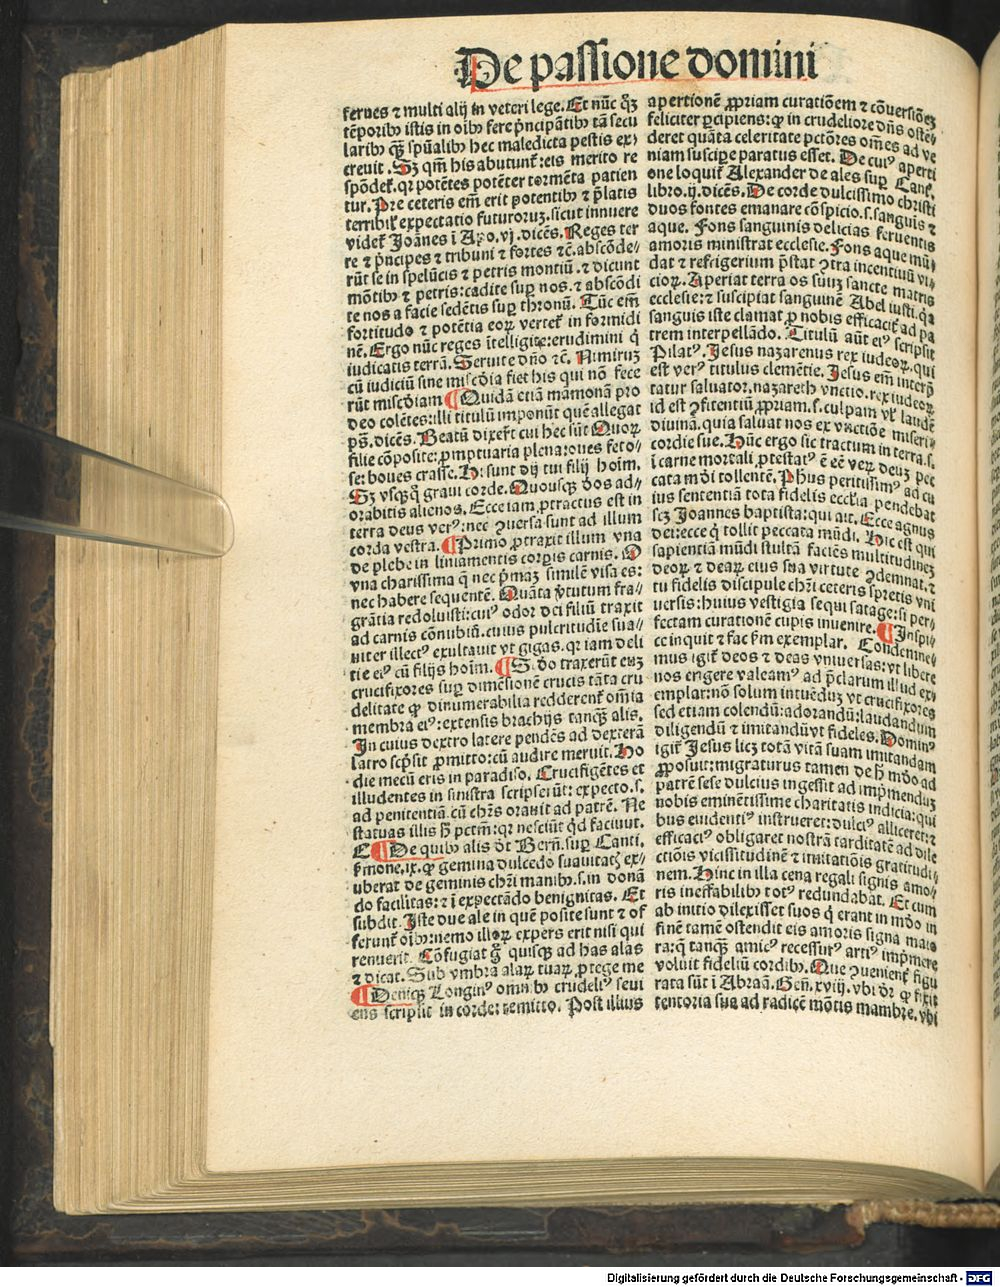 De passione domini
ferues ⁊ multi alij in veteri lege. Et nūc qꝫ
tēporibꝰ istis in oībꝰ fere pͥncipātibꝰ tā secu
laribꝰ qꝫ spūalibꝰ hec maledicta pestis ex⸗
creuit. Sꝫ qm̄ his abutunt᷑: eis merito re
spōdet᷑. qꝛ potētes potēter tormēta patien
tur. Pre ceteris em̄ erit potentibꝰ ⁊ p̄latis
terribil᷑ expectatio futuroꝝ. sicut innuere
videt᷑ Joānes ī Apo. vj. dicēs. Reges ter
re ⁊ pͥncipes ⁊ tribuni ⁊ fortes ⁊c̄. abscōde⸗
rūt se in spelūcis ⁊ petris montiū. ⁊ dicunt
mōtibꝰ ⁊ petris: cadite suꝑ nos. ⁊ abscōdi
te nos a facie sedētis suꝑ thronū. Tūc em̄
fortitudo ⁊ potētia eoꝝ vertet᷑ in formidi
nē. Ergo nūc reges ītelligite: erudimini q̇
iudicatis terrā. Seruite dn̄o ⁊c̄. Nimiruꝫ
cū iudiciū sine miscd̄ia fiet his qui nō fece
rūt miscd̄iam ¶ Quidā etiā mamonā pro
deo colētes: illi titulū imponūt quē allegat
ps̄. dicēs. Beatū dixer̄t cui hec sūt Quoꝝ
filie cōposite: ꝓmptuaria plena: oues feto⸗
se: boues crasse. H: sunt dij tui filij hoīm.
Sꝫ vsqꝫ q̇ graui corde. Quousqꝫ ð̄os ad⸗
orabitis alienos. Ecce iam ꝓtractus est in
terra deus verꝰ: nec ꝯuersa sunt ad illum
corda vestra. ¶ Primo ꝓtraxit illum vna
de plebe in liniamentis corꝑis carnis. O
vna charissima q̄ nec pͥmaꝫ similē visa es:
nec habere sequentē. Quāta v̓tutum fra⸗
grātia redoluisti: cuiꝰ odor dei filiū traxit
ad carnis cōnubiū. cuius pulcritudīe sua⸗
uiter illectꝰ exultauit vt gigas. qꝛ iam deli
tie eiꝰ cū filijs hoīm. ¶ Scd̄o traxerūt euꝫ
crucifixores suꝑ dimēsionē crucis tāta cru
delitate ꝙ dinumerabilia redderent᷑ om̄ia
membra eiꝰ: extensis brachijs tanqꝫ alis.
In cuius dextro latere pendēs ad dexterā
latro scpͥsit ꝓmitto: cū audire meruit. Ho
die mecū eris in paradiso. Crucifigētes et
illudentes in sinistra scripserūt: expecto. s.
ad penitentiā cū chr̄s orauit ad patrē. Ne
statuas illis h̄ pctm̄: qꝛ nesciūt qd̄ faciunt.
E ¶ De quibꝰ alis d̄t Bern̄. suꝑ Canti.
ẜmone. ix. ꝙ gemina dulcedo suauitatꝭ ex⸗
uberat de geminis chr̄i manibꝰ. s. in donā
do facilitas: ⁊ ī expectādo benignitas. Et
subdit. Iste due ale in quē posite sunt ⁊ of
ferunt᷑ oībꝰ: nemo illoꝝ expers erit nisi qui
renuerit. Cōfugiat g̊ quisqꝫ ad has alas
⁊ dicat. Sub vmbra alaꝝ tuaꝝ ꝓtege me
¶ Deniqꝫ Longinꝰ omnibꝰ crudeliꝰ seui
ens scripsit in corde: remitto. Post illius
apertionē ꝓpriam curatiōem ⁊ cōuersiōeꝫ
feliciter ꝑcipiens: ꝙ in crudeliore dn̄s oste⸗
deret quāta celeritate pctōres om̄es ad ve
niam suscipe paratus esset. De cuiꝰ aperti
one loquit᷑ Alexander de ales suꝑ Cant̉.
libro. ij. dicēs. De corde dulcissimo christi
duos fontes emanare cōspicio. s. sanguis ⁊
aque. Fons sanguinis delicias feruentis
amoris ministrat ecclesie. Fons aque mū⸗
dat ⁊ refrigerium p̄stat ꝯtra incentiuū vi⸗
cioꝝ. Aperiat terra os suū sancte matris
ecclesie: ⁊ suscipiat sanguinē Abel iusti. q̄a
sanguis iste clamat ꝓ nobis efficacit᷑ ad pa
trem interpellādo. Titulū aūt eiꝰ scripsit
Pilatꝰ. Jesus nazarenus rex iudeoꝝ. qui
est verꝰ titulus clemētie. Jesus em̄ interp̄
tatur saluator. nazareth vnctio. rex iudeoꝝ
id est ꝯfitentiū ꝓpriam. s. culpam vl᷑ laudē
diuinā. quia saluat nos ex vnctiōe miseri⸗
cordie sue. Hūc ergo sic tractum in terra. s.
ī carne mortali ꝓtestatꝰ ē eē veꝝ deuꝫ pec
cata mūdi tollentē. Phus peritissimꝰ ad cu
ius sententiā tota fidelis eccl̄ia pendebat
scꝫ Joannes baptista: qui ait. Ecce agnus
dei: ecce q̇ tollit peccata mūdi. Hic est qui
sapientiā mūdi stultā faciēs multitudineꝫ
deoꝝ ⁊ deaꝝ eius sua virtute ꝯdemnat. ⁊
tu fidelis discipule chr̄i ceteris spretis vni
uersis: huius vestigia sequi satage: si per⸗
fectam curationē cupis inuenire. ¶ Inspi⸗
ce inquit ⁊ fac ẜm exemplar. Condemne⸗
mus igit᷑ deos ⁊ deas vniuersas: vt libere
nos erigere valeamꝰ ad p̄clarum illud ex⸗
emplar: nō solum intuēduꝫ vt crucifixores
sed etiam colendū: adorandū: laudandum
diligendū ⁊ imitandū vt fideles. Dominꝰ
igit᷑ Jesus licꝫ totā vitā suam imitandam
ꝓposuit: migraturus tamen de h̄ mūdo ad
patrē sese dulcius ingessit ad impͥmenduꝫ
nobis eminētissime charitatis indicia: qui
bus euidentiꝰ instrueret: dulciꝰ alliceret: ⁊
efficaciꝰ obligaret nostrā tarditatē ad dile
ctiōis vicissitudinē ⁊ imitatiōis gratitudi⸗
nem. Hinc in illa cena regali signis amo⸗
ris ineffabilibꝰ totꝰ redundabat. Et cum
ab initio dilexisset suos q̇ erant in mūdo in
finē tamē ostendit eis amoris signa maio
ra: q̄ tanqꝫ amicꝰ recessurꝰ artiꝰ impͥmere
voluit fideliū cordibꝰ. Que ꝯuenient᷑ figu
rata sūt ī Abraā. Gen̄. xviij. vbi d̄r ꝙ fixit
tentoria sua ad radicē mōtis mambre. vbi
Digitalisierung gefördert durch die Deutsche Forschungsgemeinschaft - DFG